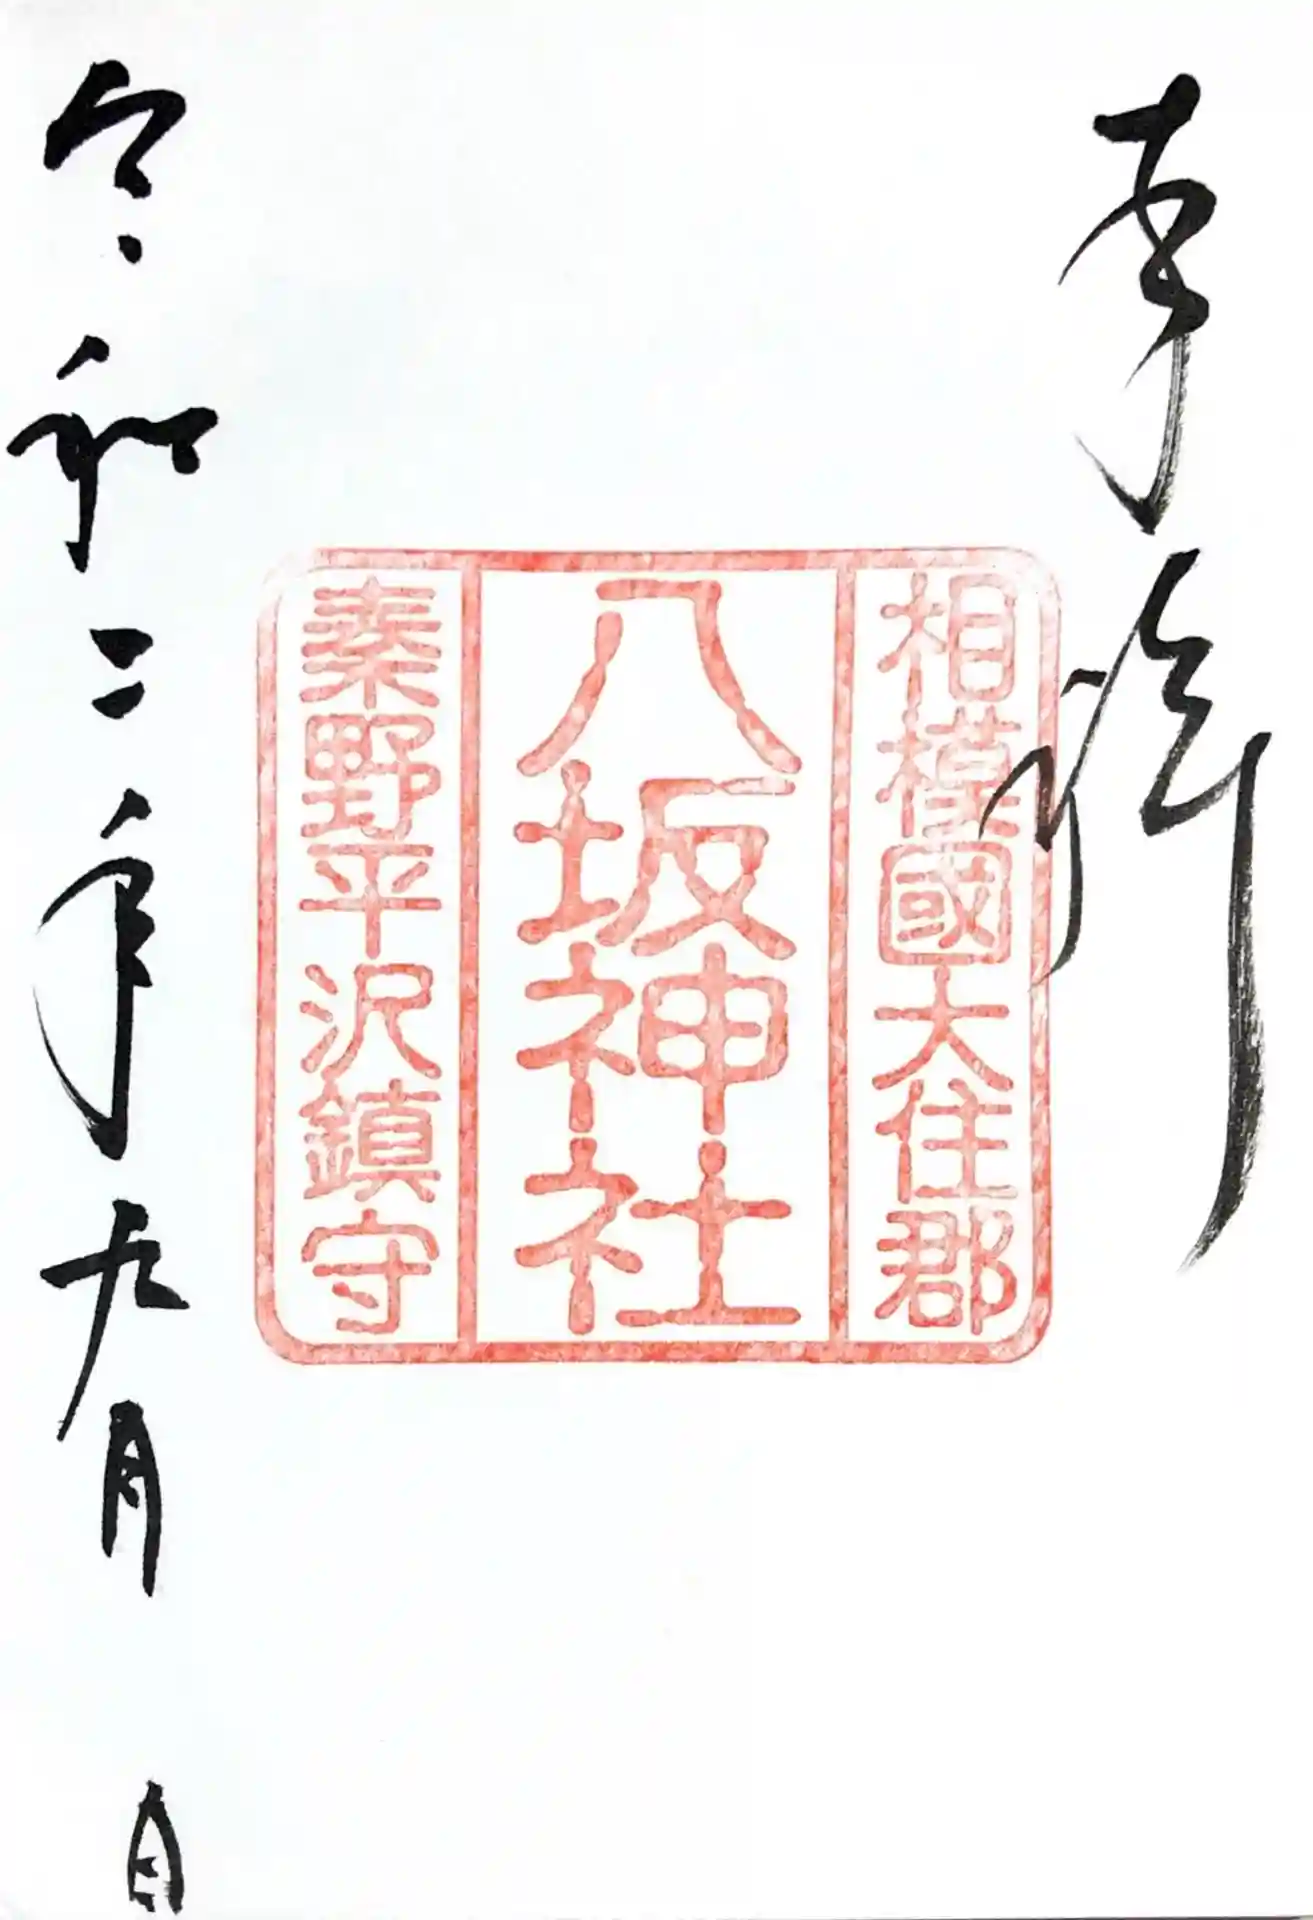 奉拝
相模國大住郡
八坂神社
秦野平沢鎮守
令和二年九月 日